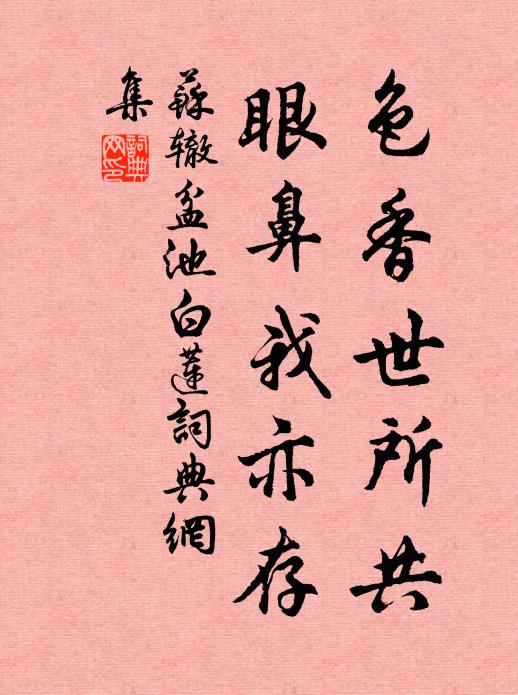 色香世所共
眼鼻我亦存
蘇辙盆池白蓮詞典網
集
詞典網印